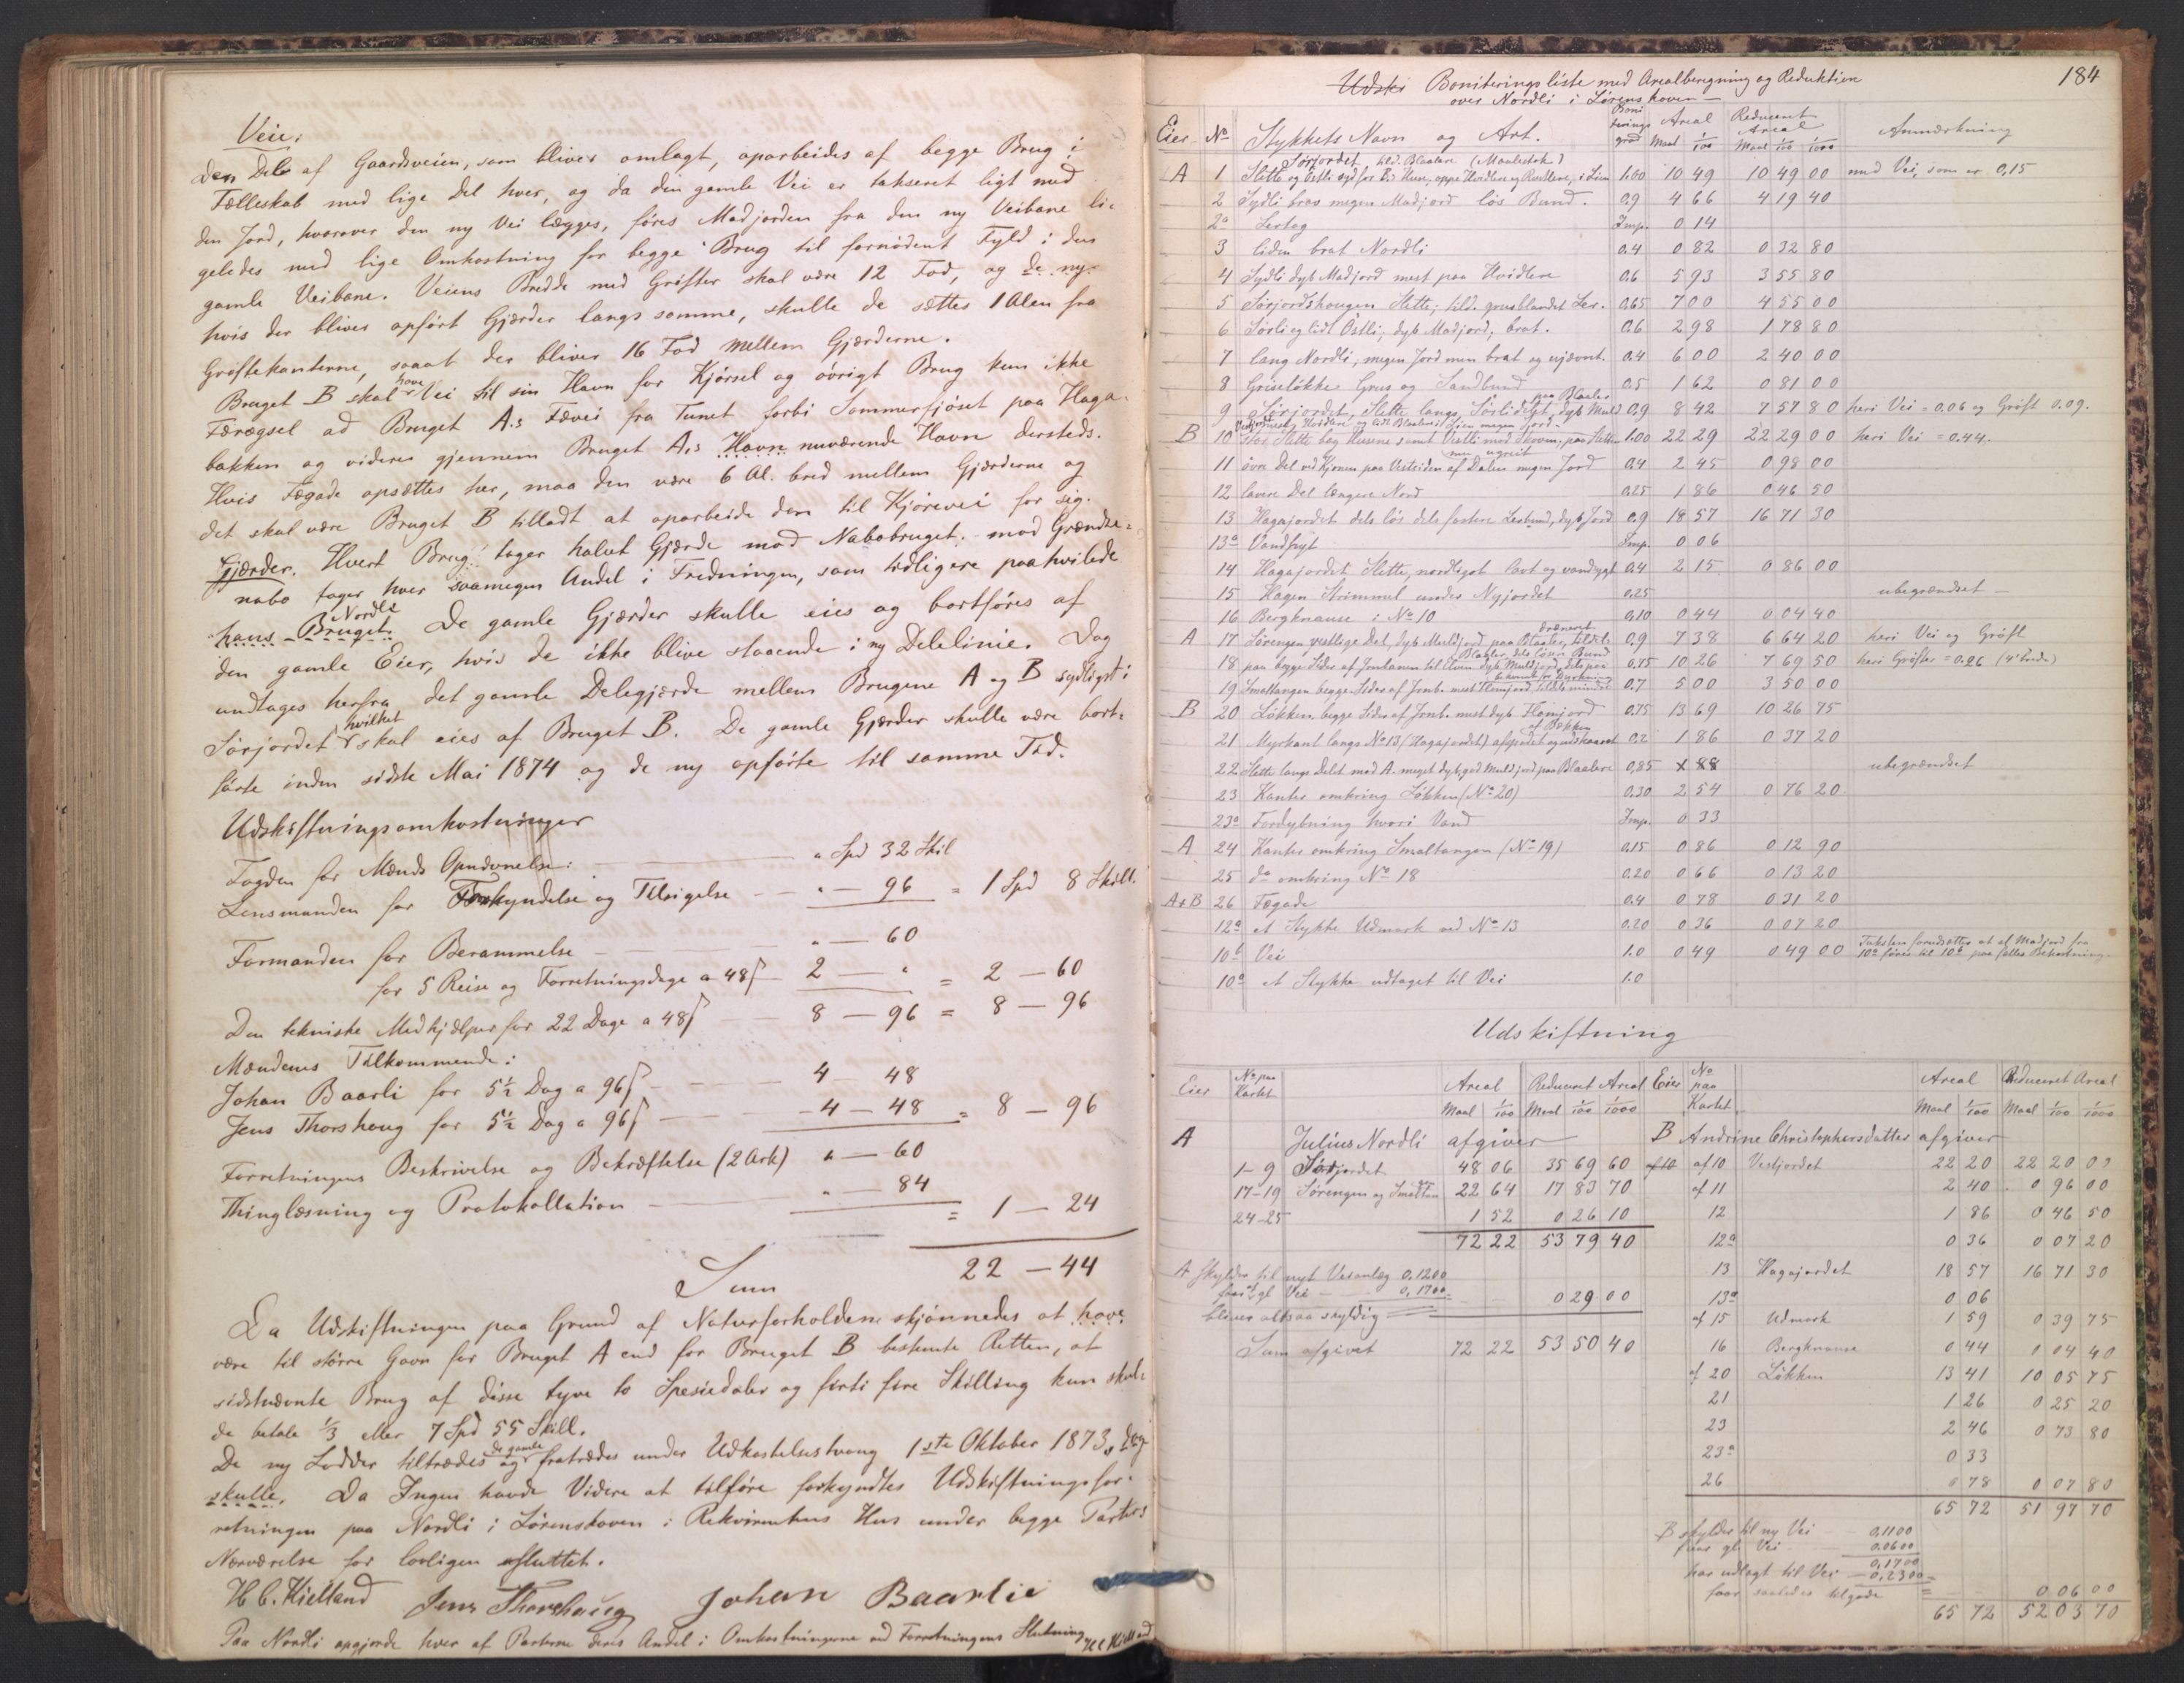 Veie:
Den Del af Gaardsveien, som bliver omlagt, oparbeides af begge Brug i
Fælleskab med lige Del hver, og da den gamle Vei er takseret ligt med
den Jord, hvorover den ny Vei lægges, føres Madjorden fra den ny Veibane li-
geledes med lige Omkostning for begge Brug til fornødent Fyld i den
gamle Veibane. Veiens Bredde med Grøfter skal være 12 Fod, og de ny
hvis der bliver opført Gjærder langs samme, skulle de sættes 1 Alen fra
Grøftekanterne, saaat der bliver 16 Fod mellem Gjærderne.
Bruget B skal have Vei til sin Havn for Kjørsel og øvrigt Brug kun ikke
Færægsel ad Bruget A.s Fævei fra Tunet forbi Sommerfjøset paa Haga-
bakken og videre gjennem Bruget A.s Havn nuværende Havn dersteds.
Hvis Fægade opsættes her, maa den være 6 Al. bred mellem Gjærderne og
det skal være Bruget B tilladt at oparbeide den til Kjørevei for sig.
Gjærder. Hvert Brug tager halvt Gjærde mod Nabobruget; mod Grændse-
nabo tager hver saamegen Andel i Fredningen, som tidligere paahvilede
hans Bruget Nordli De gamle Gjærder skulle eies og bortføres af
den gamle Eier, hvis de ikke blive staaende i ny Delelinie. Dog
undtages herfra det gamle Delegjærde mellem Brugene A og B sydligst i
Sørjordet hvilket skal eies af Bruget B. De gamle Gjærder skulle være bort-
førte inden sidste Mai 1874 og de ny opførte til samme Tid.
Udskiftningsomkostninger
Fogden for Mænds Opnævnelse: " Spd 32 Skil
Lensmanden for Forkyndelse og Tilsigelse " — 96 = 1 Spd 8 Skill.
Formanden for Berammelse " — 60
for 5 Reise og Forretningsdage a 48 ß 2 — " = 2 — 60
Den tekniske Medhjælper for 22 Dage a 48 ß 8 — 96 = 8 — 96
Mændenes Tilkommende:
Johan Baarli for 5½ Dag a 96 ß 4 48
Jens Thorshaug for 5½ Dag a 96 ß 4 — 48 = 8 — 96
Forretningens Beskrivelse og Bekræftelse (2 Ark) " — 60
Thinglæsning og Protokollation " — 84
= 1 — 24
Sum 22 — 44
Da Udskiftningen paa Grund af Naturforholdene skjønnedes at have
være til større Gavn for Bruget A end for Bruget B bestemte Retten, at
sidstnævnte Brug af disse tyve to Spesiedaler og firti fire Skilling kun skul-
de betale ⅓ eller 7 Spd 55 Skill.
De ny Lodder tiltrædes og de gamle fratrædes under Udkastelsestvang 1ste Oktober 1873,
skulle. Da Ingen havde Videre at tilføre forkyndtes Udskiftningsfor-
retningen paa Nordli i Lørenskoven i Rekvirentens Hus under begge Parters
Nærværelse for lovligen sluttet.
H C. Kielland Jens Thorshaug Johan Baarlie
Paa Nordli opgjorde hver af Parterne deres Andel i Omkostningerne ved Forretningens Slutning H C Kielland
184
Udski Boniteringsliste med Arealberegning og Reduktion
over Nordli i Lørenskoven —
Eier No Stykkets Navn og Art. Boniteringsgrad Areal Maal 1/100 Reduceret Areal Maal 1/100 1/1000 Anmærkning
A 1 Sørjordet, tild. Blaalere (Maalestok) Slette og Østli syd for B.s Huse, oppe Hvidlere og Rødlere, i Lien 1.00 10 49 10 49 00 med Vei, som er 0,15
2 Sydli brav megen Madjord løs Bund. 0.9 4 66 4 19 40
2a Lertag Imp. 0 14
3 liden brat Nordli 0.4 0 82 0 32 80
4 Sydli dyb Madjord mest paa Hvidlere 0.6 5 93 3 55 80
5 Sørjordshaugen Slette; tild. grusblandet Ler. 0.65 7 00 4 55 00
6 Sørli og lidt Østli, dyb Madjord, brat. 0.6 2 98 1 78 80
7 lang Nordli, megen Jord men brat og ujævnt. 0.4 6 00 2 40 00
8 Griseløkke Grus og Sandbund 0.5 1 62 0 81 00
9 Sørjordet, Slette langs Sørlidelet, dyb Muld paa Blaaler 0.9 8 42 7 57 80 heri Vei = 0.06 og Grøft 0.09.
B 10 Vestjordet, Hvidlere og lidt Blaalere i Lien megen Jord. Stor Slette bag Husene samt Vestli mod Skoven, paa Sletten 1.00 22 29 22 29 00 heri Vei = 0.44.
11 øvre Del ved Kjernen paa Vestsiden af Dalen megen Jord men ugreit 0.4 2 45 0 98 00
12 lavere Del længere Nord 0.25 1 86 0 46 50
13 Hagajordet dels løs dels fastere Lerbund, dyb Jord 0.9 18 57 16 71 30
13a Vandpyt Imp. 0 06
14 Hagajordet Slette, nordligst lavt og vandsygt 0.4 2 15 0 86 00
15 Hagen Strimmel under Nyjordet 0.25 ubegrændset —
16 Bergknause i No 10 0.10 0 44 0 04 40
A 17 Sørengen vestlige Del, dyb Muldjord paa Blaaler, tildels drænert 0.9 7 38 6 64 20 heri Vei og Grøft
18 paa begge Sider af Jernbanen til Elven dyb Muldjord, dels paa Blaaler, dels løsere Bund 0.75 10 26 7 69 50 heri Grøfter = 0.26
19 Smaltangen begge Sider af Jernb. mest Flomjord, tildels mindre bekvemt for Dyrkning 0.7 5 00 3 50 00
B 20 Løkken begge Sider af Jernb. mest dyb Flomjord 0.75 13 69 10 26 75
21 Myrkant langs No 13 (Hagajordet) afspadet og udskaaret af Bækken 0.2 1 86 0 37 20
22 Slette langs Delet mod A. meget dyb, god Muldjord paa Blaalere 0.85 x 88 ubegrændset
23 Kanter omkring Løkken (No 20) 0.30 2 54 0 76 20
23a Fordybning hvori Vand Imp. 0 33
A 24 Kanter omkring Smaltangen (No 19) 0.15 0 86 0 12 90
25 do omkring No 18 0.20 0 66 0 13 20
A+B 26 Fægade 0.4 0 78 0 31 20
12a et Stykke Udmark ved No 13 0.20 0 36 0 07 20
10b Vei 1.0 0 49 0 49 00 Taksten forudsætter at al Madjord fra 10a føres til 10b paa fælles Bekostning
10a et Stykke udtaget til Vei 1.0
Udskiftning
Eier No paa Kartet Areal Maal 1/100 Reduceret Areal Maal 1/100 1/1000 Eier No paa Kartet Areal Maal 1/100 Reduceret Areal Maal 1/100 1/1000
A Julius Nordli afgiver
1–9 Sørjordet 48 06 35 69 60
17–19 Sørengen og Smaltan 22 64 17 83 70
24–25 1 52 0 26 10
72 22 53 79 40
A skylder til nyt Veianlæg 0,1200
for gl Vei 0,1700
bliver altsaa skyldig 0 29 00
Sum afgivet 72 22 53 50 40
B Andrine Christophersdatter afgiver
af 10 af 10 Vestjordet 22 20 22 20 00
af 11 2 40 0 96 00
12 1 86 0 46 50
12a 0 36 0 07 20
13 Hagajordet 18 57 16 71 30
13a 0 06
af 15 Udmark 1 59 0 39 75
16 Bergknause 0 44 0 04 40
af 20 Løkken 13 41 10 05 75
21 1 26 0 25 20
23 2 46 0 73 80
23a 0 33
26 0 78 0 07 80
65 72 51 97 70
B skylder til ny Vei 0,1100
faar gl. Vei 0.0600
0,1700
har udlagt til Vei 0,2300
faar saaledes tilgode 0 06 00
65 72 52 03 70